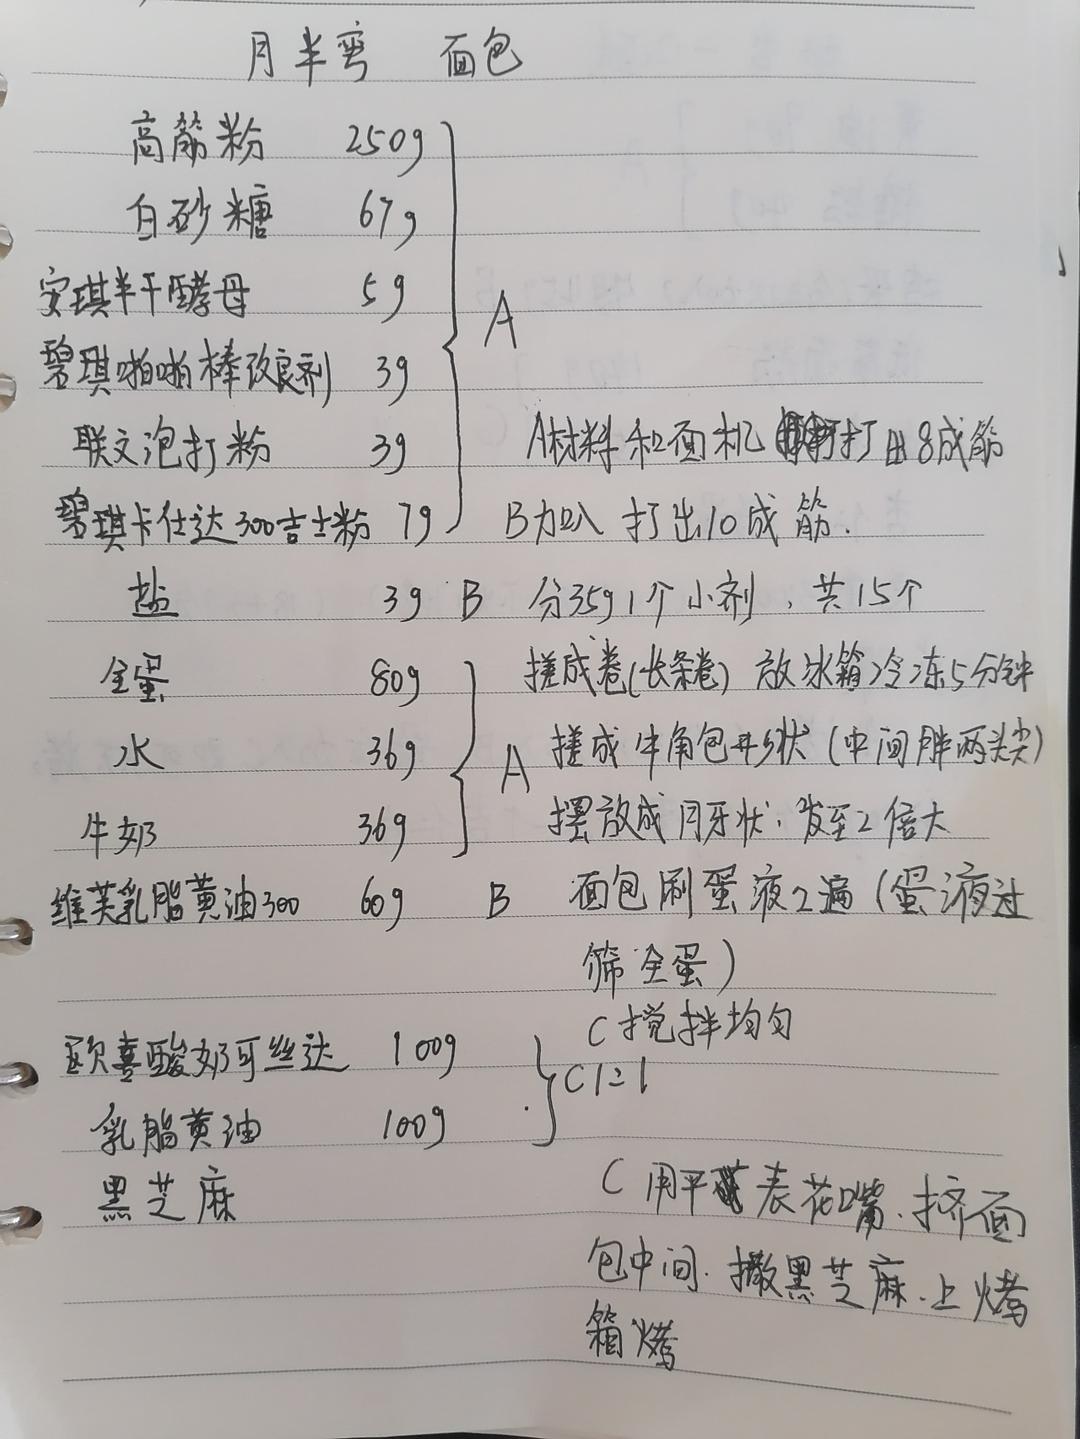 月半弯 面包
高筋粉 250g
白砂糖 67g
安琪半干酵母 5g
A
碧琪啪啪棒改良剂 3g
联文泡打粉 3g A材料和面机 打出8成筋
碧琪卡仕达300吉士粉 7g B加入 打出10成筋.
盐 3g B 分35g1个小剂，共15个
全蛋 80g 搓成卷(长条卷) 放冰箱冷冻5分钟
水 36g A 搓成牛角包形状(中间胖两头尖)
牛奶 36g 摆放成月牙状，发至2倍大
维芙乳脂黄油300 60g B 面包刷蛋液2遍(蛋液过
筛全蛋)
C搅拌均匀
欧喜酸奶可丝达 100g C 1:1
乳脂黄油 100g
黑芝麻 C用平 表花嘴.挤面
包中间.撒黑芝麻.上烤
箱烤